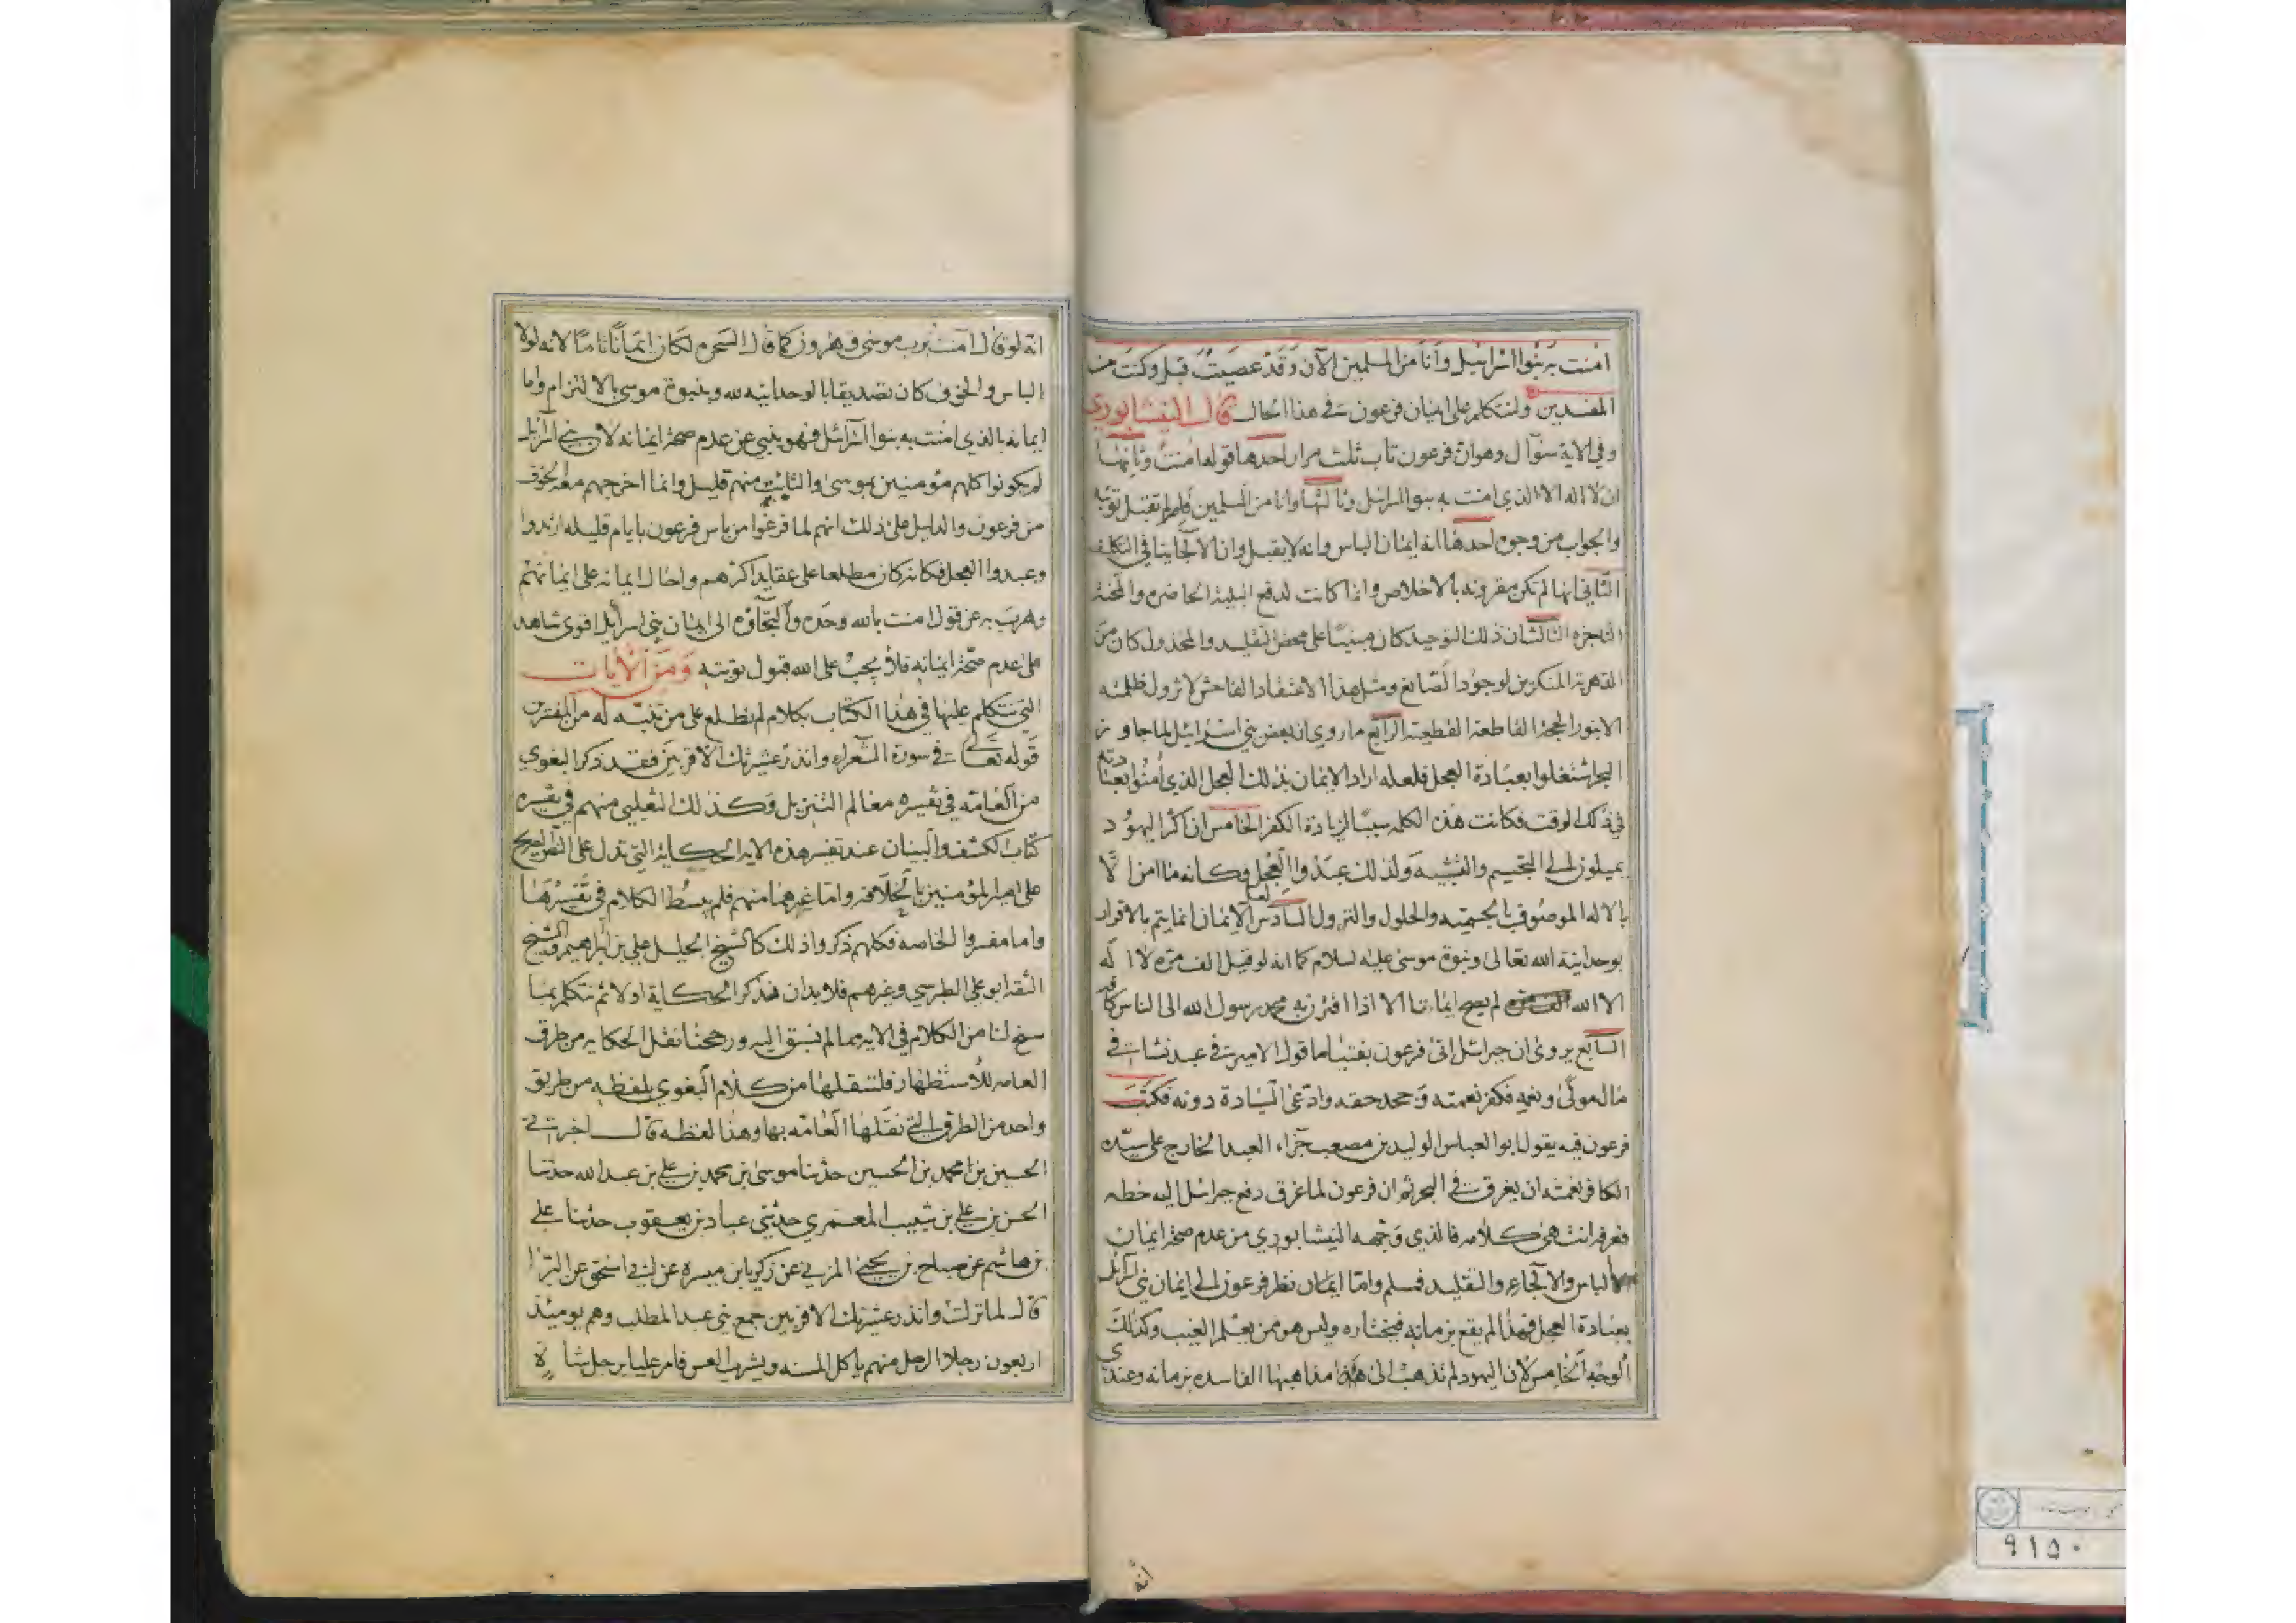 امنت به بنوا اسرائيل وانا من المسلمين الآن وقد عصيت قبل وكنت من
المفسدين ولنتكلم على ايمان فرعون في هذا الحال قال النيشابوري
وفي الاية سؤال وهو ان فرعون تاب ثلث مرار احدها قوله امنت وثانيها
ان لا اله الا الذي امنت به بنوا اسرائيل وثالثها وانا من المسلمين فلم لم تقبل توبته
والجواب من وجوه احدها انه ايمان الباس وانه لا يقبل وان الالجا ينافي التكليف
الثاني انها لم تكن مقرونه بالاخلاص وانما كانت لدفع البلية الحاضره والمحنة
الناجزه الثالث ان ذلك التوحيد كان مبنيا على محض التقليد والمخذول كان من
الدهرية المنكرين لوجود الصانع ومثل هذا الاعتقاد الفاحش لا تزول ظلمته
الا بنور الحجة القاطعة القطعية الرابع ما روي ان بعض بني اسرائيل لما جاوز
البحر اشتغلوا بعبادة العجل فلعله اراد الايمان بذلك العجل الذي امنوا بعبادته
في ذلك الوقت فكانت هذه الكلمه سببا لزيادة الكفر الخامس ان اكثر اليهود
يميلون الى التجسيم والتشبيه ولذلك عبدوا العجل فكانه ما امن الا
بالاله الموصوف بالجسميه والحلول والنزول السادس لعل الايمان انما يتم بالاقرار
بوحدانية الله تعالى ونبوة موسى عليه لسلام كما انه لو قيل الف مره لا اله
الا الله لم يصح ايماننا الا اذا اقترن به محمد رسول الله الى الناس كافه
السابع يروى ان جبرائيل اتى فرعون بفتيا ما قول الامير في عبد نشا في
مال مولى ونعمه فكفر نعمته وجحد حقه وادعى السيادة دونه فكتب
فرعون فيه يقول ابو العباس الوليد بن مصعب جزاء العبد الخارج على سيده
الكافر نعمته ان يغرق في البحر ثم ان فرعون لما غرق دفع جبرائيل اليه خطه
فعرفه انتهى كلامه فالذي وجهه النيشابوري من عدم صحة ايمان
الباس والالجاء والتقليد فمسلم واما ايمان نظر فرعون الى ايمان بني اسرائيل
بعبادة العجل فهذا لم يقع بزمانه فيختاره وليس هو ممن يعلم الغيب وكذلك
الوجه الخامس لان اليهود لم تذهب الى هذا مذاهبها الفاسده بزمانه وعندي
انه
انه لو قال امنت برب موسى وهرون كما قال السحره لكان ايمانا تاما لانه لولا
الباس والخوف كان تصديقا بالوحدانيه لله وبنبوة موسى بالالتزام واما
ايمانه بالذي امنت به بنوا اسرائيل فهو ينبي عن عدم صحة ايمانه لان بني اسرائيل
لم يكونوا كلهم مؤمنين بموسى والثابت منهم قليل وانما اخرجهم معه الخوف
من فرعون والدليل على ذلك انهم لما فرغوا من باس فرعون بايام قليله ارتدوا
وعبدوا العجل فكانه كان مطلعا على عقايد اكثرهم واحال ايمانه على ايمانهم
وهربه عن قول امنت بالله وحده والتجاؤه الى ايمان بني اسرائيل اقوى شاهد
على عدم صحة ايمانه فلا يجب على الله قبول توبته ومن الايات
التي نتكلم عليها في هذا الكتاب بكلام لم نطلع على من تنبه له من المفسرين
قوله تعالى في سورة الشعراء وانذر عشيرتك الاقربين فقد ذكر البغوي
من العامه في تفسيره معالم التنزيل وكذلك الثعلبي منهم في تفسيره
كتاب الكشف والبيان عند تفسير هذه الاية الحكاية التي تدل على النص الصريح
على امير المؤمنين بالخلافه واما غيرهما منهم فلم يبسط الكلام في تفسيرها
واما مفسروا الخاصه فكلهم ذكروا ذلك كالشيخ الجليل علي بن ابراهيم والشيخ
الثقه ابو علي الطبرسي وغيرهم فلا بد ان نذكر الحكاية اولا ثم نتكلم بما
سنح لنا من الكلام في الايه مما لم نسبق اليه ورجحنا نقل الحكايه من طرق
العامه للاستظهار فلننقلها من كلام البغوي بلفظه من طريق
واحد من الطرق التي نقلها العامه بها وهذا لفظه قال اخبرني
الحسين بن محمد بن الحسين حدثنا موسى بن محمد بن علي بن عبد الله حدثنا
الحسن بن علي بن شبيب المعمري حدثني عباد بن يعقوب حدثنا علي
بن هاشم عن صباح بن يحيى المزني عن زكريا بن ميسره عن ابي اسحق عن البرا
قال لما نزلت وانذر عشيرتك الاقربين جمع بني عبد المطلب وهم يومئذ
اربعون رجلا الرجل منهم ياكل المسنه ويشرب العس فامر عليا برجل شاة
٩١٥٠